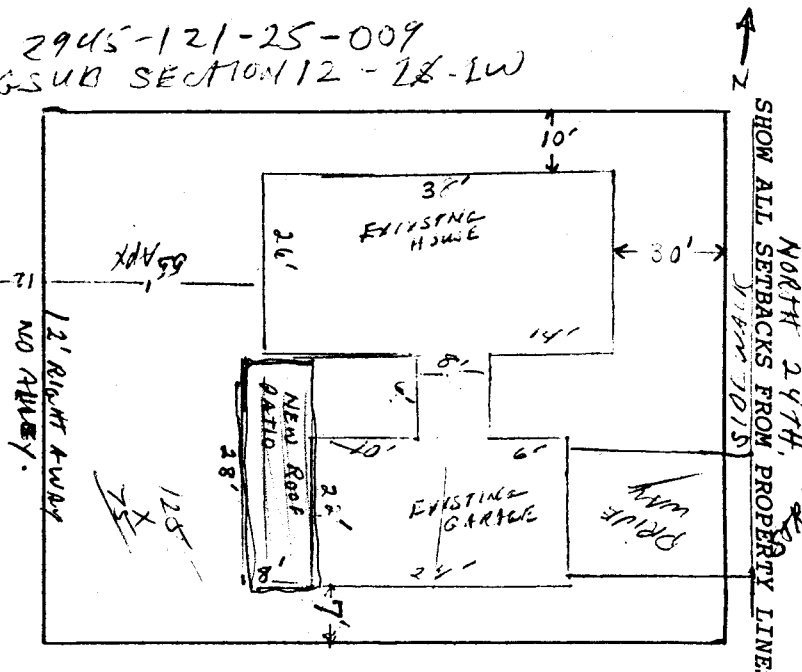 2945-121-25-009
SECTION 12 - 1W
N
SHOW ALL SETBACKS FROM PROPERTY LINE
NORTH 24TH.
SIDE WALK
10'
EXISTING
HOUSE
26'
30'
14'
55' APX
12
12' RIGHT AWAY
NO ALLEY.
8'
6'
NEW ROOF
PATIO
28'
22'
8'
7'
EXISTING
GARAGE
DRIVE
WAY
125
X
75